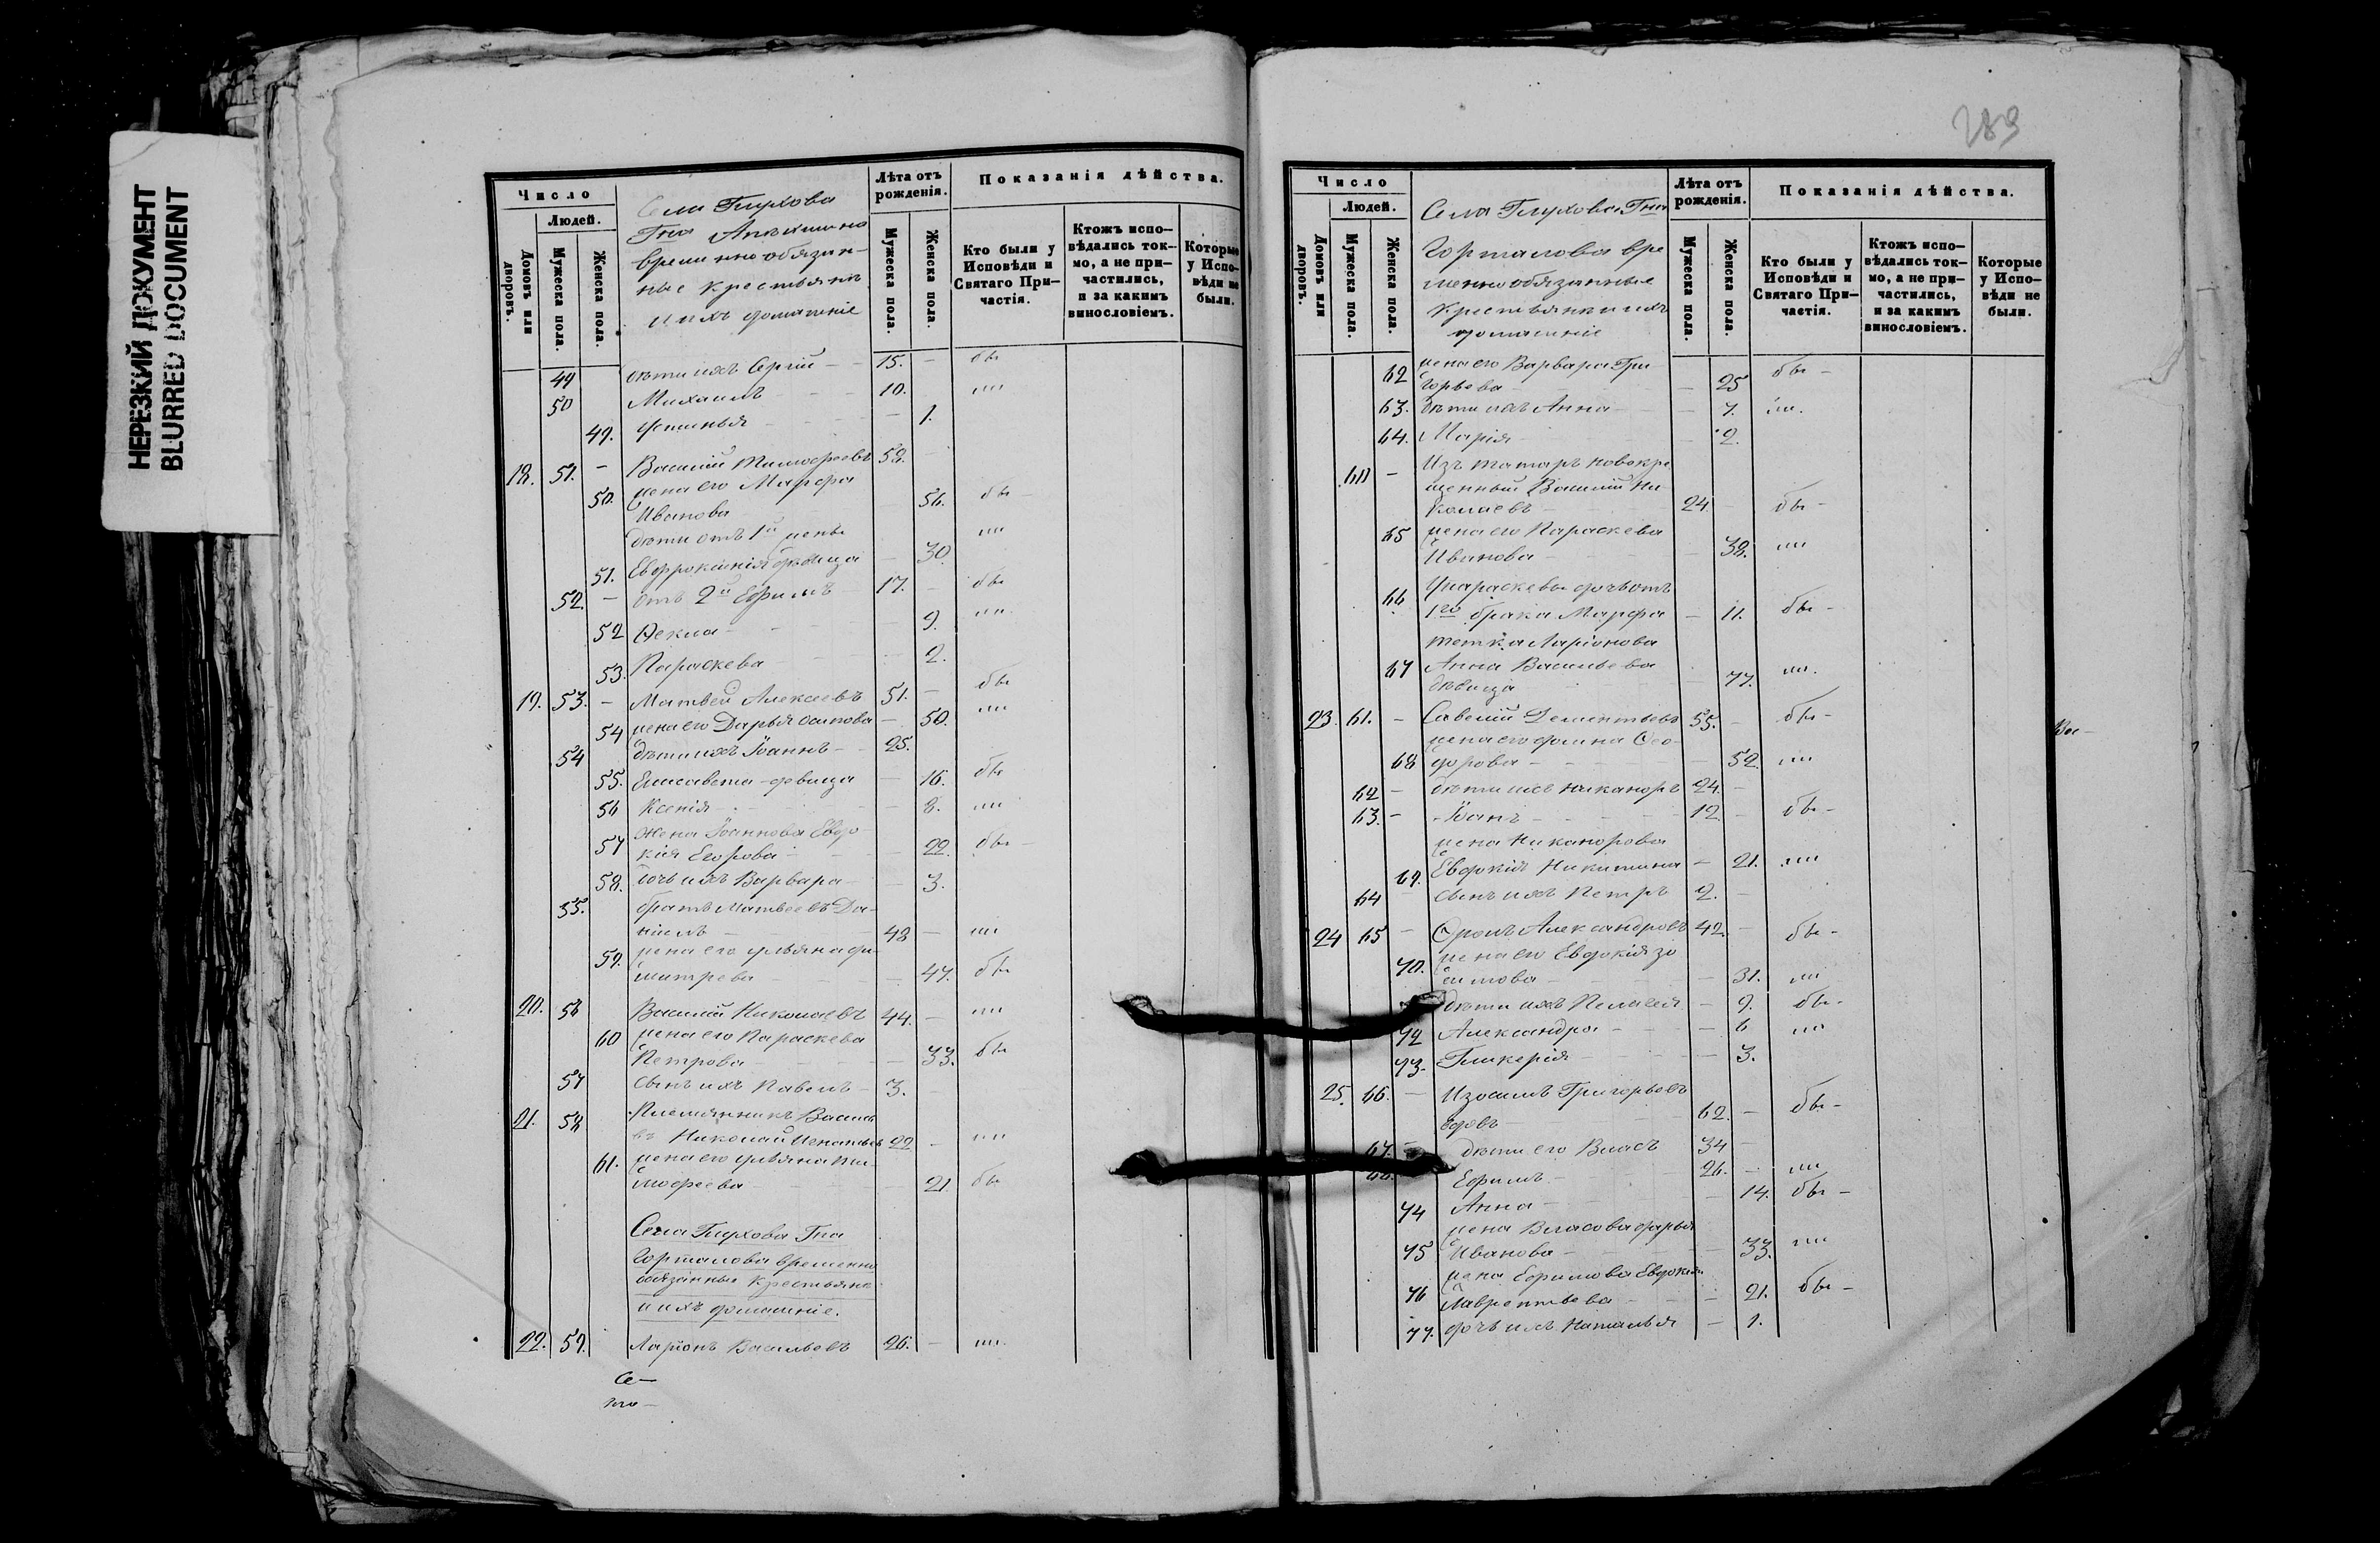 НЕРЕЗКИЙ ДОКУМЕНТ
BLURRED DOCUMENT
Число
Людей.
Домовъ или дворовъ.
Мужеска пола.
Женска пола.
Села Глухова
Гна
временнообязан-
ные крестьяне
и ихъ домашніе
Лѣта отъ рожденія.
Мужеска пола.
Женска пола.
Показанія дѣйства.
Кто были у Исповѣди и Святаго При-частія.
Ктожъ испо-вѣдались ток-мо, а не при-частились, и за какимъ винословіемъ.
Которые у Испо-вѣди не были.
49 дѣти ихъ Сергій — 15. — бы
50 Михаилъ — 10. ""
49. Устинья — 1.
18. 51. — Василій Тимофеевъ 58.
50. жена его Марфа
Иванова 56. бы
дѣти отъ 1й жены ""
51. Евфросинія дѣвица — 30.
52. — отъ 2й Ефимъ 17. — бы
52 Ѳекла — 9. ""
53. Параскева — 2.
19. 53. — Матвей Алексеевъ 51. — бы
54 жена его Дарья Осипова — 50. ""
54 дѣти ихъ Іоаннъ — 25.
55. Елисавета дѣвица — 16. бы
56 Ксенія — 8. ""
жена Іоаннова Евдо-
57 кія Егорова — 22. бы —
58. дочь ихъ Варвара — 3.
55. братъ Матвеевъ Да-
ніилъ — 48 — ""
59. жена его Ульяна Ди-
митрева — 47. бы
20. 56 Василій Николаевъ 44. — ""
60 жена его Параскева
Петрова — 33. бы
57 сынъ ихъ Павелъ — 3.
21. 58 Племянникъ Василь
евъ Николай Игнатьев 22 — ""
61. жена его Ульяна Ти-
мофеева — 21. бы
Села Глухова Гна
Горталова временно
обязанные крестьяне
и ихъ домашніе.
22. 59. Ларіонъ Васильевъ 26. — ""
же—
на—
289
Число
Людей.
Домовъ или дворовъ.
Мужеска пола.
Женска пола.
Села Глухова Гна
Горталова вре
меннообязанные
крестьяне и ихъ
домашніе
Лѣта отъ рожденія.
Мужеска пола.
Женска пола.
Показанія дѣйства.
Кто были у Исповѣди и Святаго При-частія.
Ктожъ испо-вѣдались ток-мо, а не при-частились, и за какимъ винословіемъ.
Которые у Испо-вѣди не были.
62 жена его Варвара Гри
горьева — 25 бы —
63. дѣти ихъ Анна — 7. ""
64. Марія — 2.
60 — Изъ татаръ новокре
щенный Василій Ни
колаевъ 24. — бы —
65 жена его Параскева
Иванова — 38. ""
66 У Параскевы дочь отъ
1го брака Марфа — 11. бы —
тетка Ларіонова
67 Анна Васильева
дѣвица 77. ""
23. 61. — Савелій Дементьевъ 55. — бы —
жена его Домна Ѳео-
68 дорова — 52. ""
62 — дѣти ихъ Никаноръ 24. —
63. — Іоанъ — 12 — бы —
жена Никанорова
69. Евдокія Никитина — 21. ""
64 — сынъ ихъ Петръ 2. —
24 65 — Фролъ Александровъ 42. — бы —
70. жена его Евдокія Зо
симова — 31. ""
дѣти ихъ Пелагія — 9. бы —
72 Александра — 6 ""
73. Гликерія — 3.
25. 66. — Изосимъ Григорьевъ
вдовъ 62. — бы —
67. — дѣти его Власъ 34 —
68. Ефимъ — 26. — ""
74 Анна — 14. бы —
жена Власова Дарья
75 Иванова — 33. ""
жена Ефимова Евдокія
76 Лаврентьева — 21. бы —
77. дочь ихъ Наталья — 1.